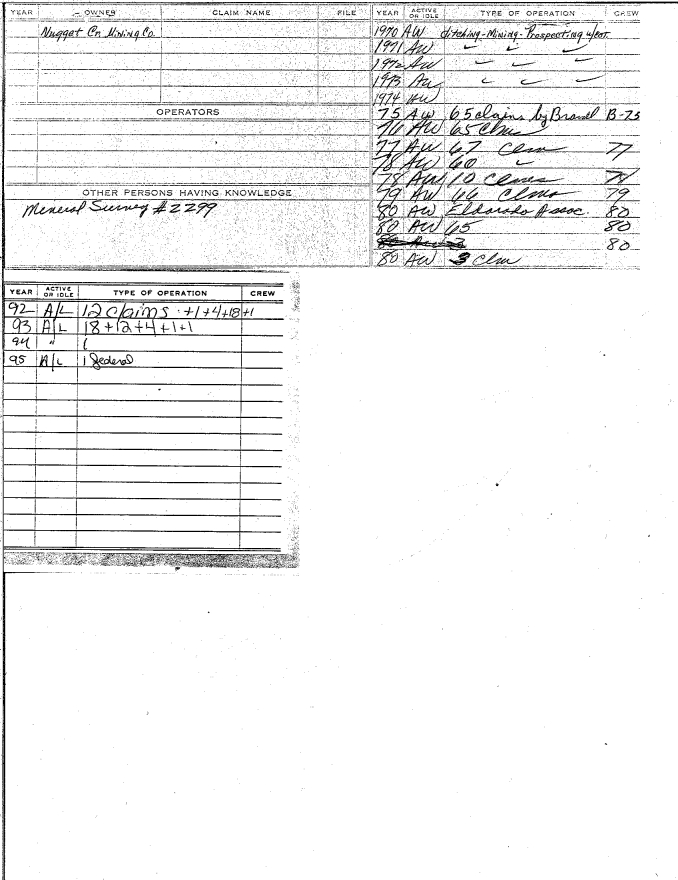 YEAR OWNER CLAIM NAME FILE
Nugget Cr. Mining Co.
OPERATORS
OTHER PERSONS HAVING KNOWLEDGE
Mineral Survey # 2299
YEAR ACTIVE OR IDLE TYPE OF OPERATION CREW
1970 AW ditching-Mining-Prospecting
1971 AW " " "
1972 AW " " "
1973 AW " " "
1974 AW
75 AW 65 claims by B-75
76 AW 65 Clms
77 AW 67 Clm 77
78 AW 60 "
78 AW 10 Clms 78
79 AW 66 Clms 79
80 AW Eldorado Assoc. 80
80 AW 65 80
80
80 AW 3 Clm
YEAR ACTIVE OR IDLE TYPE OF OPERATION CREW
92 A/L 12 claims +1+4+18+1
93 A/L 18+12+4+1+1
94 " 1
95 A/L 1 federal